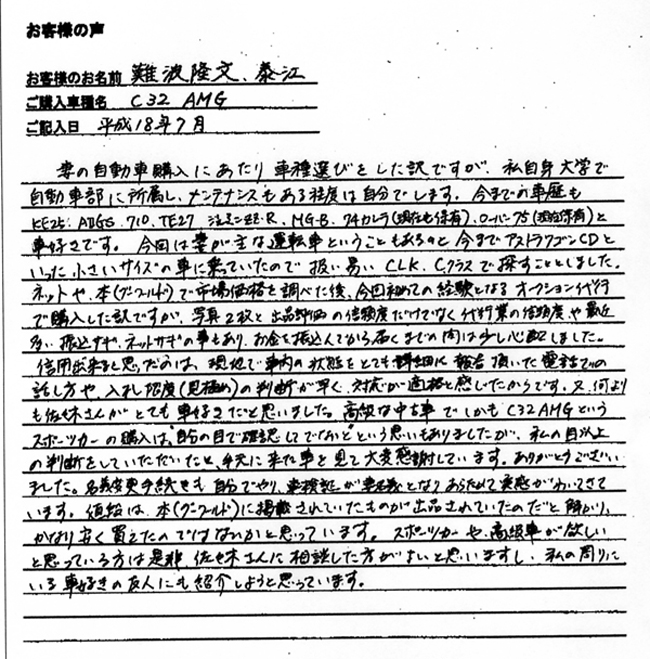 お客様の声
お客様のお名前 難波隆文、泰江
ご購入車種名 C32 AMG
ご記入日 平成18年7月
妻の自動車購入にあたり車種選びをした訳ですが、私自身大学で
自動車部に所属し、メンテナンスもある程度は自分でします。今までの車歴も
710. TE27 MG-B. 74カレラ(現在も保有). ローバー75(現在保有)と
車好きです。今回は妻が主な運転車ということもあるのと今までアストラワゴンCDと
いった小さいサイズの車に乗っていたので扱い易いCLK、Cクラスで探すこととしました。
ネットや、本(グーワールド)で市場価格を調べた後、今回初めての経験となるオークション代行
で購入した訳ですが、写真2枚と出品評価の信頼度だけでなく代行業の信頼度や最近
多い振込サギ、ネットサギの事もあり、お金を振込んでから届くまでの間は少し心配しました。
信用出来ると思ったのは、現地で車内の状態をとても詳細に報告頂いた電話での
話し方や、入札限度(見極め)の判断が早く、対応が適格と感じたからです。又、何より
も佐々木さんがとても車好きだと思いました。高級な中古車でしかもC32AMGという
スポーツカーの購入は"自分の目で確認してでないと"という思いもありましたが、私の目以上
の判断をしていただいたと、手元に来た車を見て大変感謝しています。ありがとうござい
ました。名義変更手続きも自分でやり、車検証が妻名義となりあらためて実感がわいてきて
います。値段は、本(グーワールド)に掲載されていたものが出品されていたのだと解かり、
かなり安く買えたのではないかと思っています。スポーツカーや、高級車が欲しい
と思っている方は是非、佐々木さんに相談した方がよいと思いますし、私の周りに
いる車好きの友人にも紹介しようと思っています。